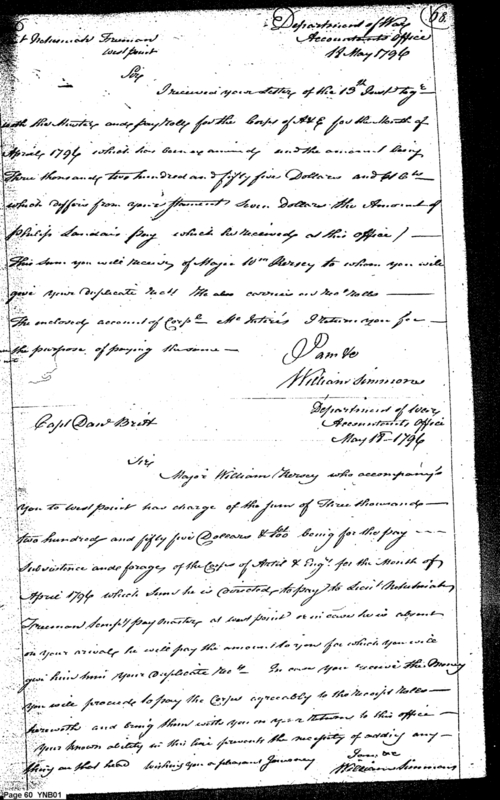 68
Department of War
Lt Nehemiah Freeman
Accountants Office
West point
18 May 1796
Sir
I received your letter of the 13th Inst
with the Muster and pay Rolls for the Corps of A & E for the Month of
April 1796 which has been examined and the amount being
Three thousand two hundred and fifty five Dollars and
which differs from your statement seven Dollars the Amount of
Philip pay which he received at this office
This sum you will receive of Major Wm Kersey to whom you will
give your duplicate rects He also carries on Rolls
The enclosed account of Corpl I return you for
the purpose of paying the same
I am &c
William Simmons
Department of War
Capt Danl Britt
Accountants Office
May 18 - 1796
Sir
Major William Kersey who accompany's
you to West point has charge of the sum of Three thousand
two hundred and fifty five Dollars & being for the pay
Subsistence and forage of the Corps of Artil & Engr for the Month of
April 1796 which sum he is directed to pay to Lieut Nehemiah
Freeman pay master at west point or in case he is absent
on your arrival he will pay the amount to you for which you will
give him your duplicate In case you receive the Money
you will proceed to pay the Corps agreeably to the receipt Rolls
herewith and bring them with you on your return to this office
Your known ability in this line prevents the necessity of adding any
thing on that head wishing you a pleasant Journey
I am, &c
William Simmons
Page 60 YNB01